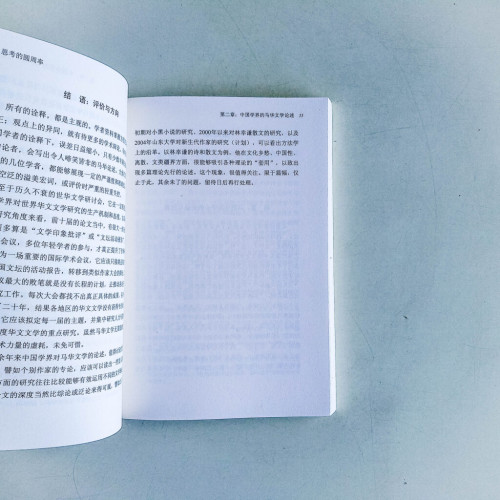 思考的圆周率
结 语：评价与方向
所有的诠释，都是主观的，学者
三；观点上的异同，就有待更多的学术
学者的诠释下，误差日益缩小，只
论者，会写出令人啼笑皆非的马华论
的几位学者，都或多或少出现一定的
空泛的溢美宏词，或评价时严重的轻重
至于历久不衰的世华文学研讨会，它
学界对世界华文文学研究的生产机制
研究角度来看，前十届的论文当中，
多算是“文学印象批评”或“文坛
会议，多位年轻学者的参与，才真正
为一场重要的国际学术会议，它应该
国文坛的活动报告，转移到类似作家
议最大的败笔就是没有长程的计划，
工作。每次大会都找不出真正具体的
了二十年，结果各地区的华文文学
它应该拟定每一届的主题，并集中研究
度华文文学的重点研究。虽然马华文学
术力量的虚耗，未免可惜。
余年来中国学界对马华文学的论述，
譬如个别作家的专论，应该可以说是
面的研究往往比较能够有效运用不同的
文的深度当然比综论或泛论来得可观，
第二章：中国学界的马华文学论述 33
初期对小黑小说的研究、2000年以来对林幸谦散文的研究，以及
2004年山东大学对新生代作家的研究（计划），可以看出方法学
上的沿革。以林幸谦的诗和散文为例，他在文化乡愁、中国性、
离散、文类疆界方面，很能够吸引各种理论的“套用”，以致出
现多篇理论先行的论述。这个现象，很值得关注。限于篇幅，仅
止于此，其余未了的问题，留待日后再行处理。